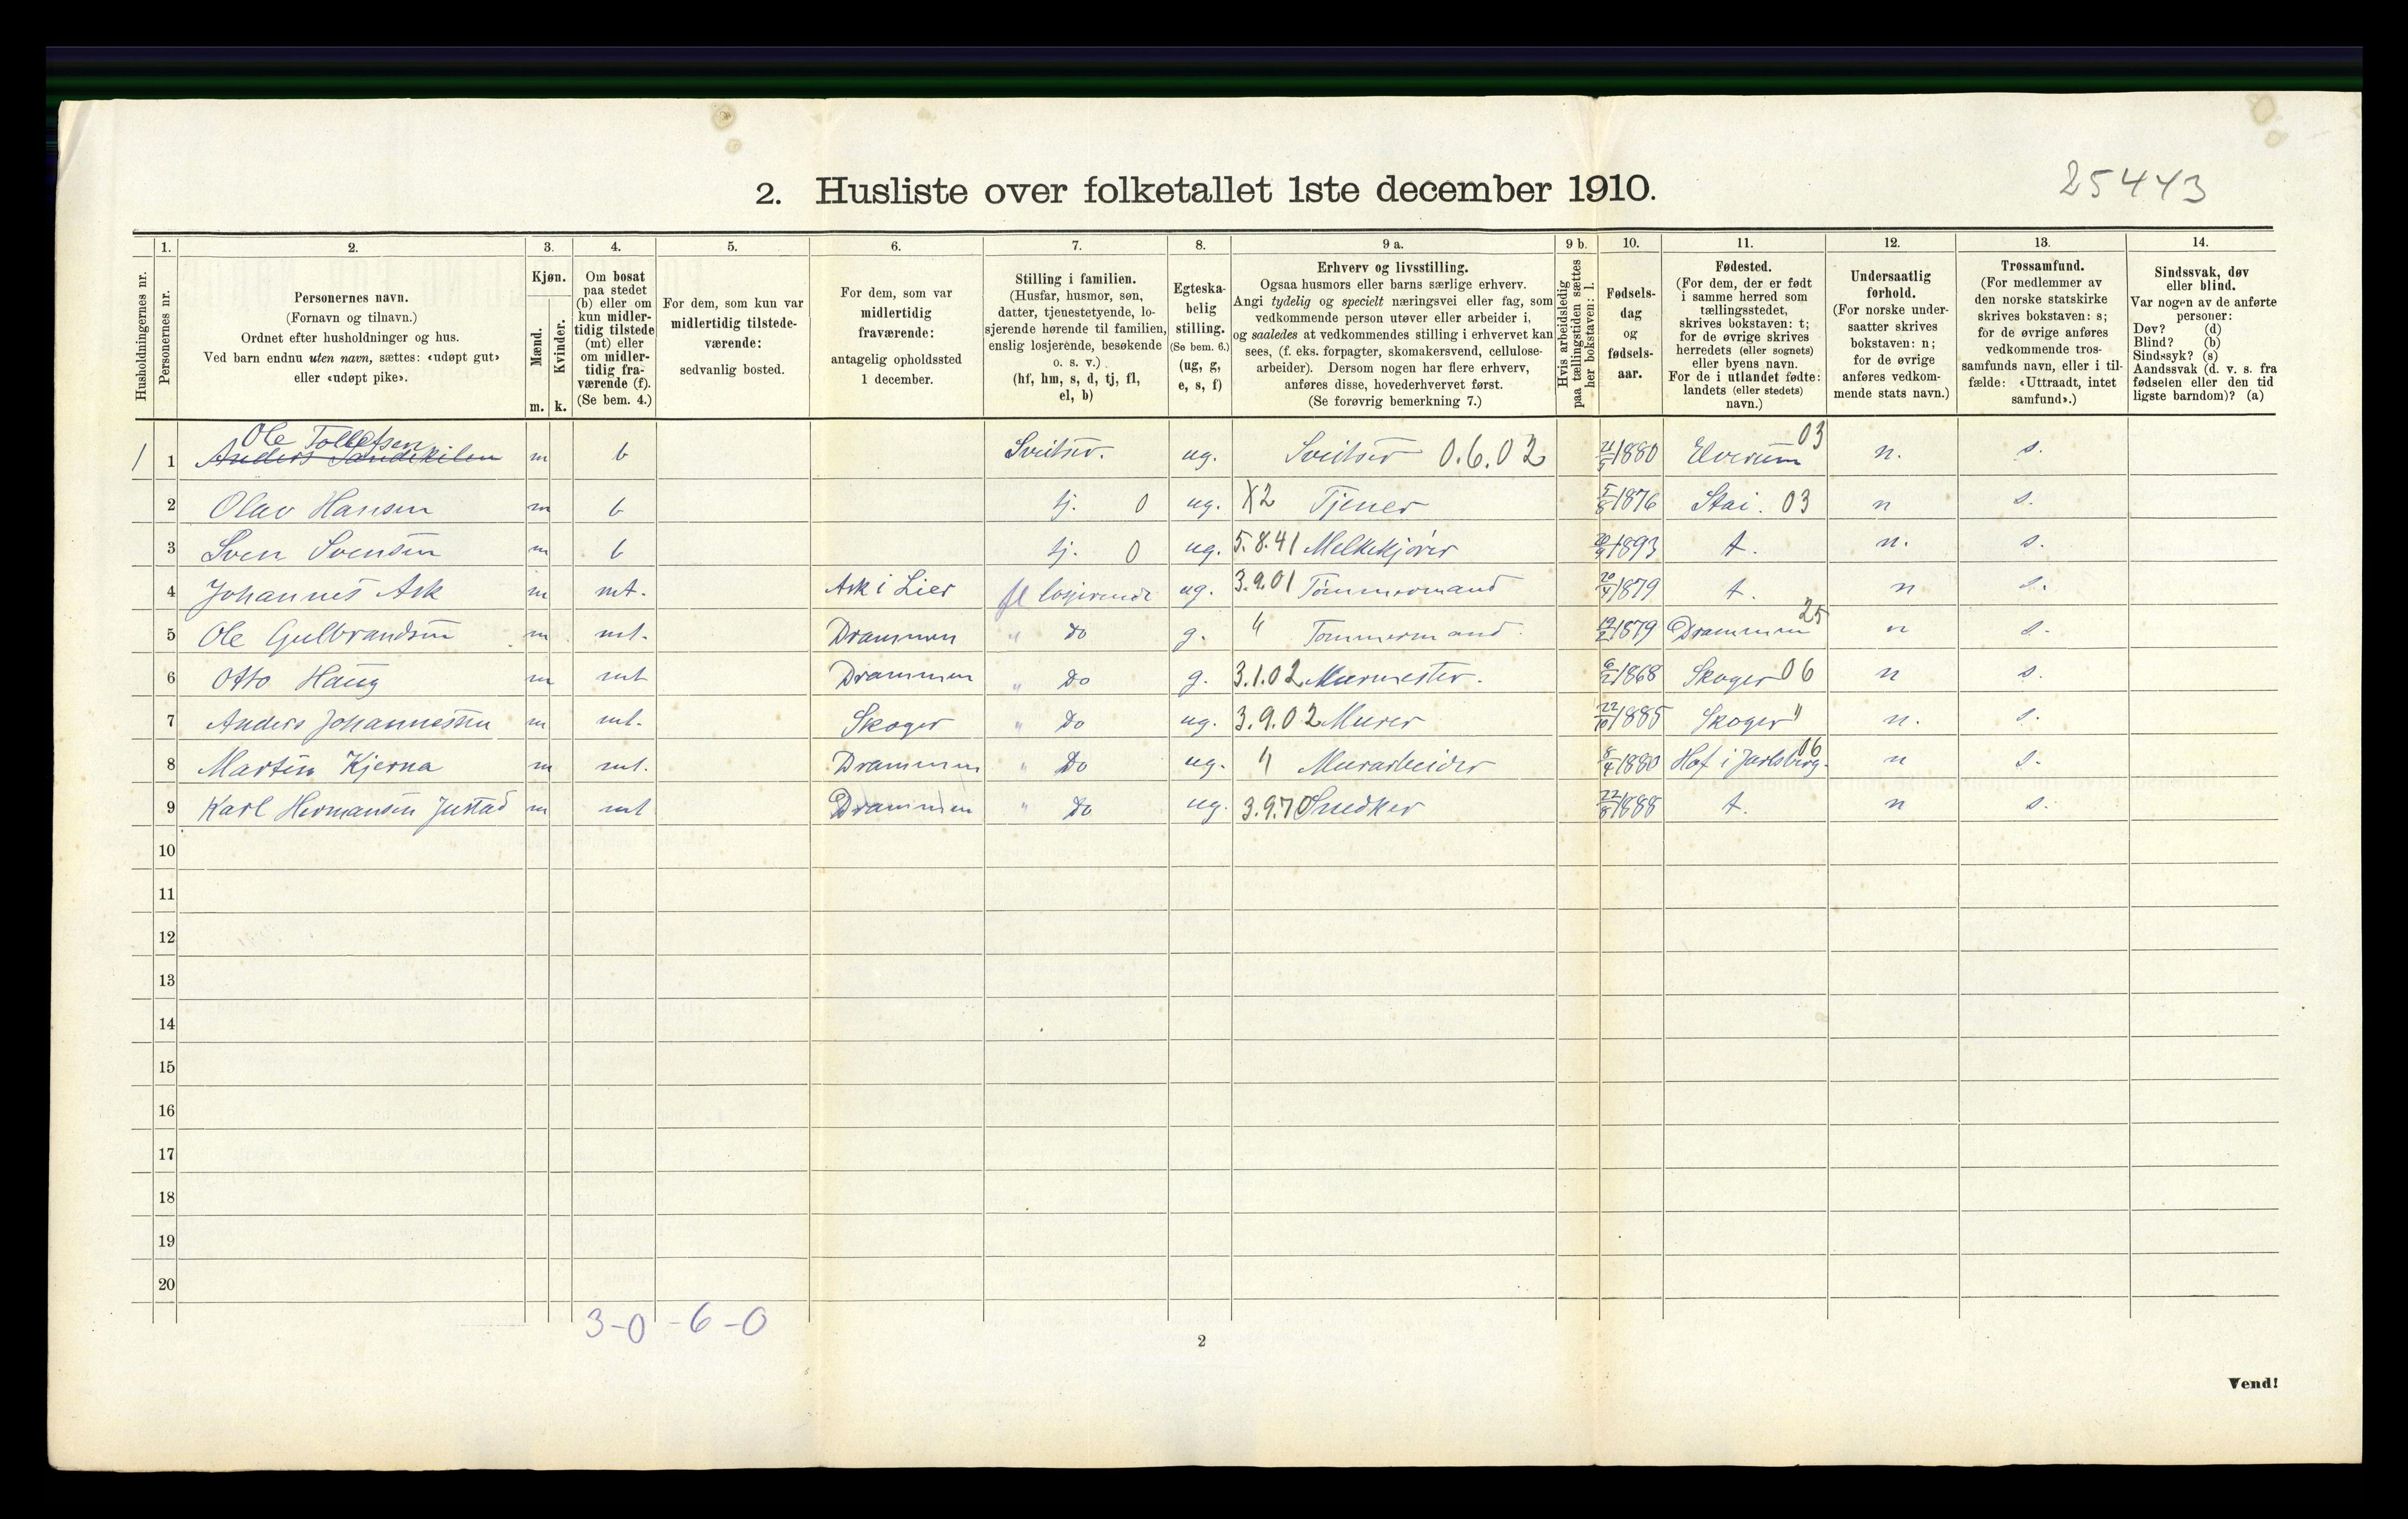 2. Husliste over folketallet 1ste december 1910.
25443
Husholdningernes nr.
1.
Personernes nr.
2.
Personernes navn.
(Fornavn og tilnavn.)
Ordnet efter husholdninger og hus.
Ved barn endnu uten navn, sættes: «udøpt gut»
eller «udøpt pike».
3.
Kjøn.
Mænd.
Kvinder.
m. k.
4.
Om bosat
paa stedet
(b) eller om
kun midler-
tidig tilstede
(mt) eller
om midler-
tidig fra-
værende (f).
(Se bem. 4.)
5.
For dem, som kun var
midlertidig tilstede-
værende:
sedvanlig bosted.
6.
For dem, som var
midlertidig
fraværende:
antagelig opholdssted
1 december.
7.
Stilling i familien.
(Husfar, husmor, søn,
datter, tjenestetyende, lo-
sjerende hørende til familien,
enslig losjerende, besøkende
o. s. v.)
(hf, hm, s, d, tj, fl,
el, b)
8.
Egteska-
belig
stilling.
(Se bem. 6.)
(ug, g,
e, s, f)
9 a.
Erhverv og livsstilling.
Ogsaa husmors eller barns særlige erhverv.
Angi tydelig og specielt næringsvei eller fag, som
vedkommende person utøver eller arbeider i,
og saaledes at vedkommendes stilling i erhvervet kan
sees, (f. eks. forpagter, skomakersvend, cellulose-
arbeider). Dersom nogen har flere erhverv,
anføres disse, hovederhvervet først.
(Se forøvrig bemerkning 7.)
9 b.
Hvis arbeidsledig
paa tællingstiden sættes
her bokstaven: l.
10.
Fødsels-
dag
og
fødsels-
aar.
11.
Fødested.
(For dem, der er født
i samme herred som
tællingsstedet,
skrives bokstaven: t;
for de øvrige skrives
herredets (eller sognets)
eller byens navn.
For de i utlandet fødte:
landets (eller stedets)
navn.)
12.
Undersaatlig
forhold.
(For norske under-
saatter skrives
bokstaven: n;
for de øvrige
anføres vedkom-
mende stats navn.)
13.
Trossamfund.
(For medlemmer av
den norske statskirke
skrives bokstaven: s;
for de øvrige anføres
vedkommende tros-
samfunds navn, eller i til-
fælde: «Uttraadt, intet
samfund».)
14.
Sindssvak, døv
eller blind.
Var nogen av de anførte
personer:
Døv? (d)
Blind? (b)
Sindssyk? (s)
Aandssvak (d. v. s. fra
fødselen eller den tid
ligste barndom)? (a)
Ole Tollefsen
1 Anders m b Sveitser. ug. Sveitser 0.6.02 1880 Elverum 03 n. s.
2 Olav Hansen m b tj. 0 ug. X2 Tjener 5/8 1876 Stai. 03 n s.
3 Sven Svensen m b tj. 0 ug. 5.8.41 Melkekjører 1893 t. n. s.
4 Johannes Ask m mt. Ask i Lier fl losjerende ug. 3.9.01 Tømmermand 20/4 1879 t. n s.
5 Ole Gulbrandsen m mt. Drammen " Do g. " Tømmermand. 1879 Drammen 25 n s.
6 Otto Haug m mt Drammen " Do g. 3.1.02 Murmester. 1868 Skoger 06 n s.
7 Anders Johannesen m mt. Skoger " Do ug. 3.9.02 Murer 22/10 1885 Skoger " n. s.
8 Martin Kjerna m mt. Drammen " Do ug. " Murarbeider 8/4 1880 Hof i Jarlsberg. 06 n s.
9 Karl Hermansen Justad m mt Drammen " Do ug. 3.9.70 Snedker 22/8 1888 t. n s.
10
11
12
13
14
15
16
17
18
19
20
3-0 -6-0
2
Vend!